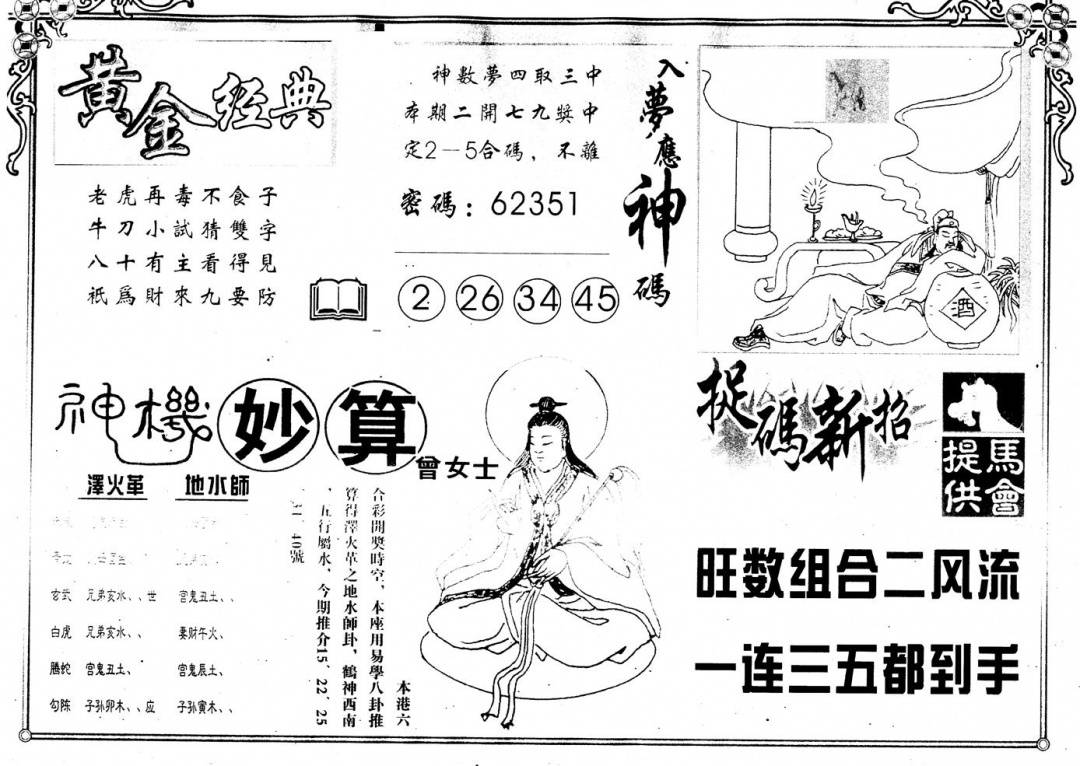 黃金經典
老虎再毒不食子
牛刀小試猜雙字
八十有主看得見
祇爲財來九要防
神數夢四取三中
本期二開七九獎中
定2－5合碼，不離
密碼：62351
2 26 34 45
入夢應神碼
酒
神機妙算
曾女士
澤火革 地水師
玄武 兄弟亥水、、世 官鬼丑土、、
白虎 兄弟亥水、、 妻財午火、
騰蛇 官鬼丑土、 官鬼辰土、
勾陈 子孙卯木、、应 子孫寅木、、
本港六
合彩開獎時空，本座用易學八卦推
算得澤火革之地水師卦，鶴神西南
，五行屬水，今期推介15、22、25
40號
捉碼新招
馬會
提供
旺数组合二风流
一连三五都到手